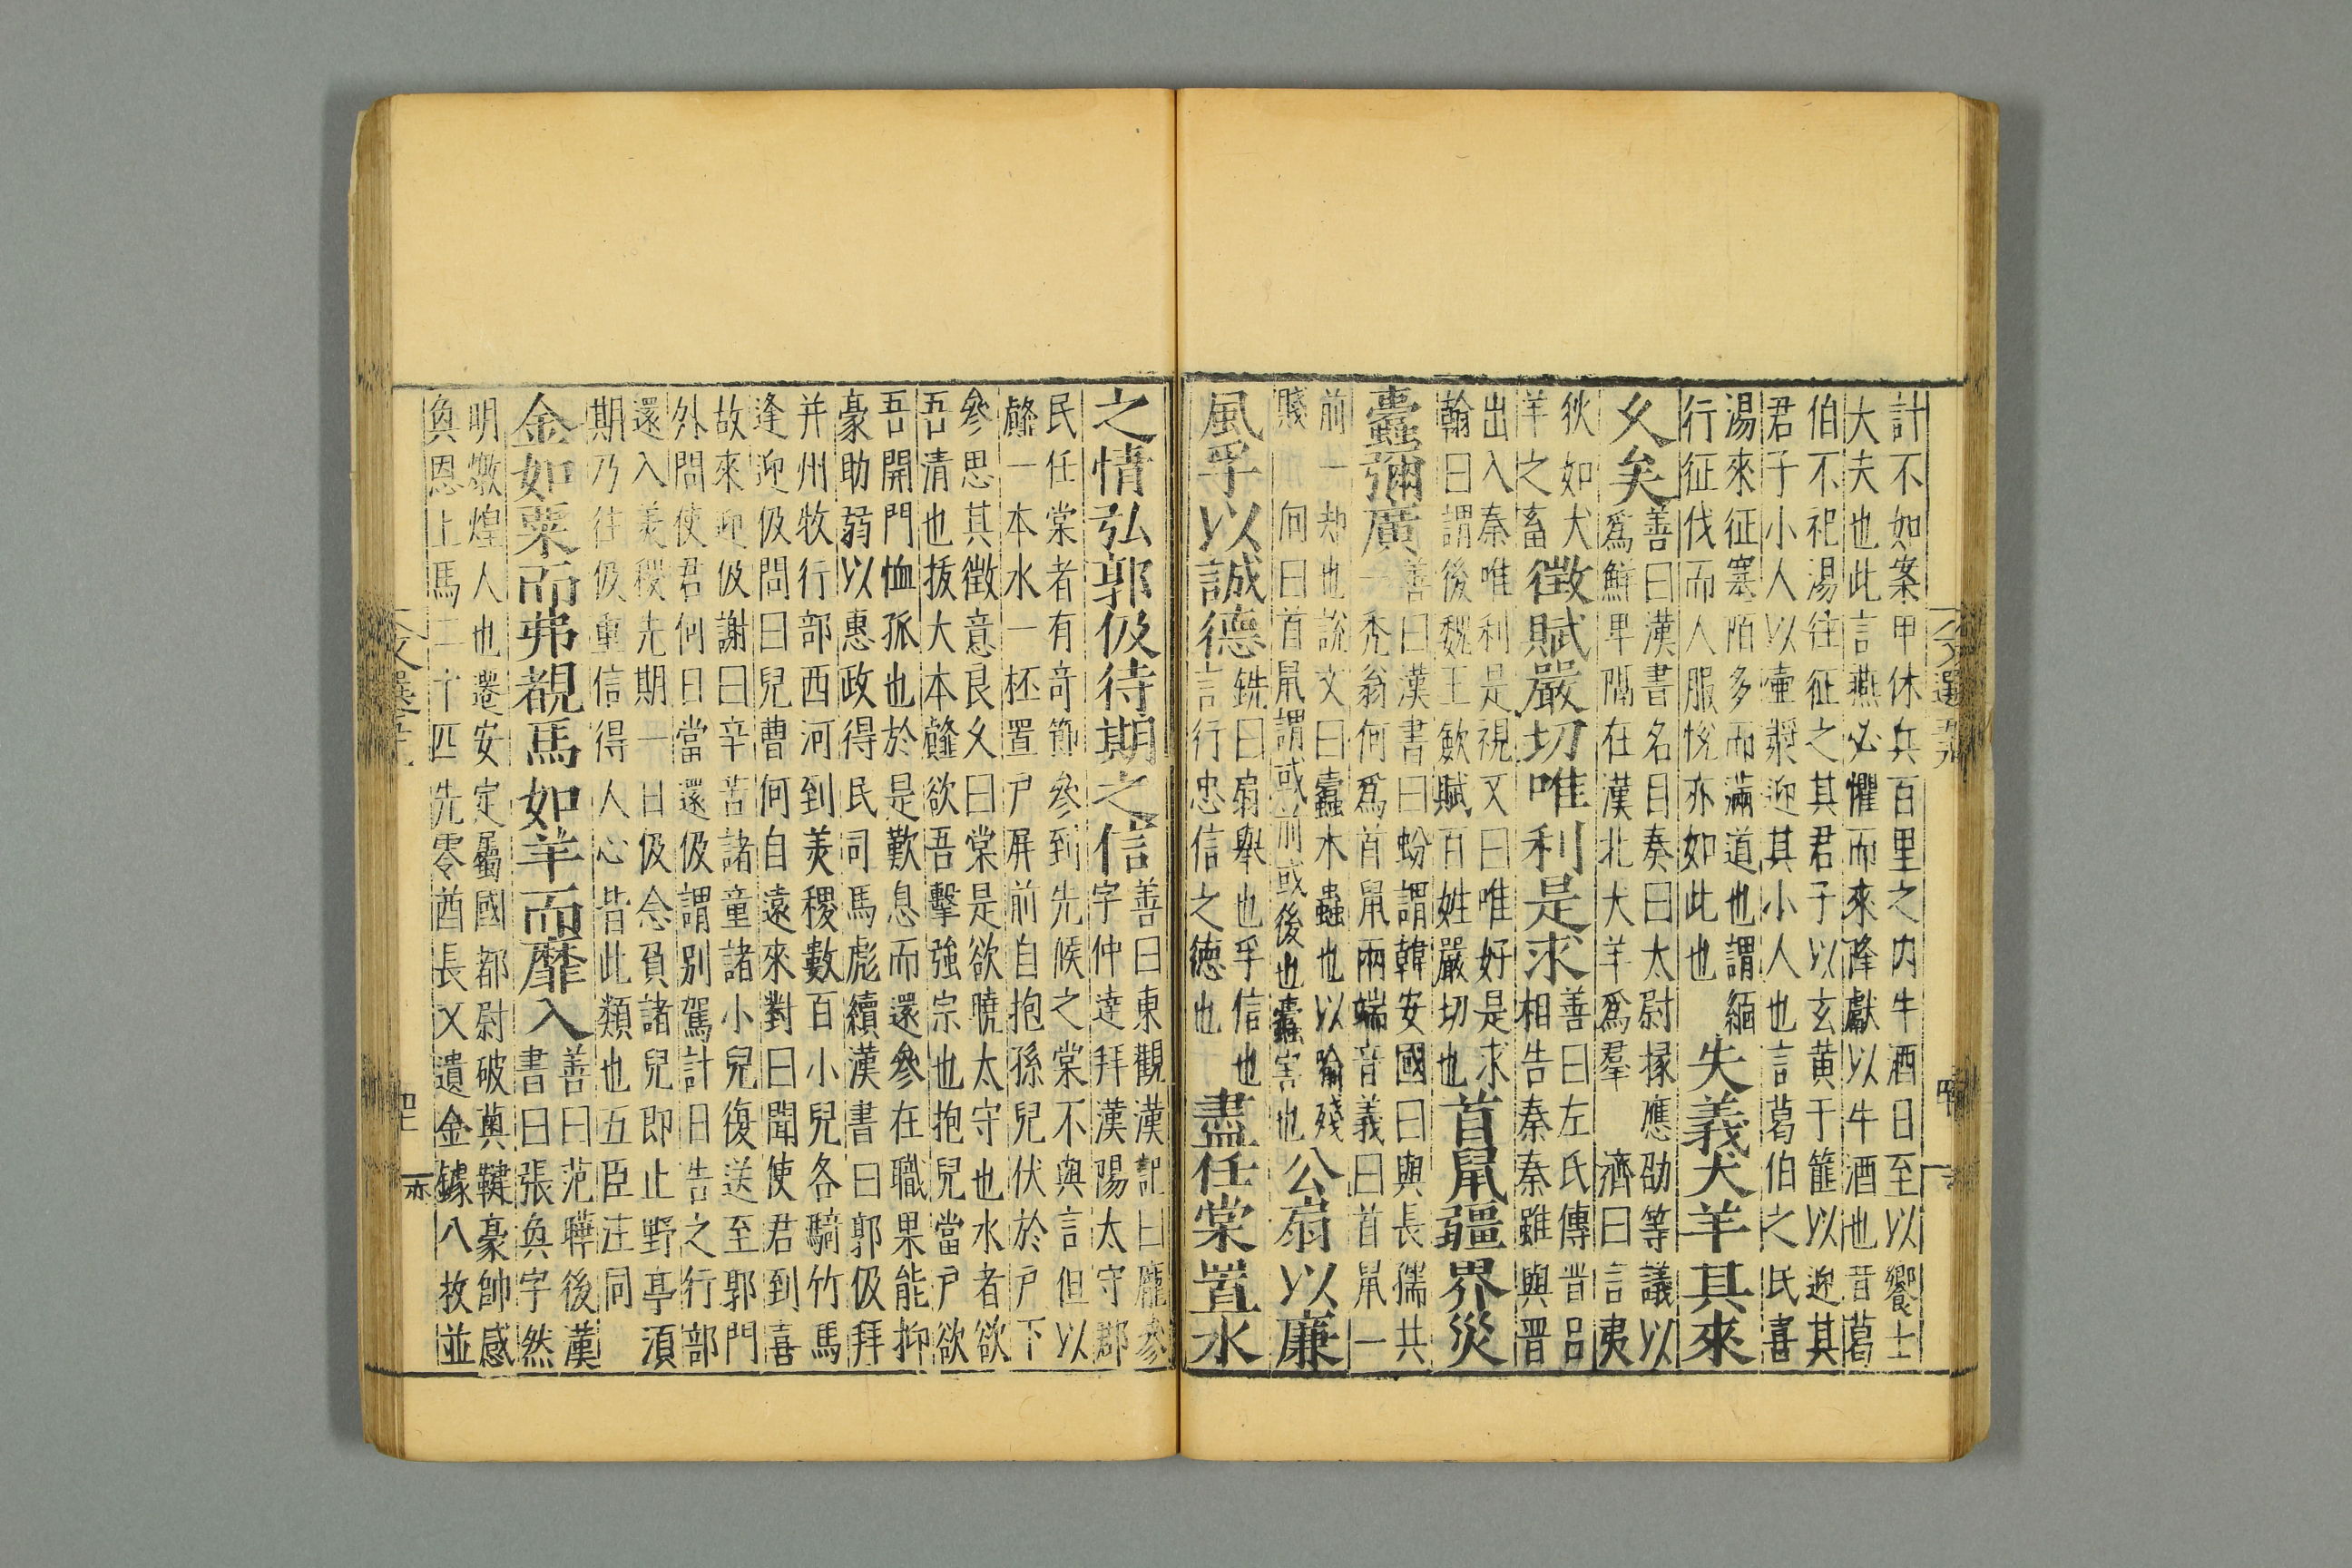 計不如案甲休兵百里之内牛酒日至以饗士
大夫也此言燕必懼而來降獻以牛酒也昔葛
伯不祀湯往征之其君子以玄黄于篚以迎其
君子小人以壷漿迎其小人也言葛伯之民喜
湯來征塞陌多而滿道也謂緬
行征伐而人服悅亦如此也
失義犬羊其來
久矣
善曰漢書名目奏曰太尉掾應劭等議以
爲鮮卑隔在漢北犬羊爲羣 濟曰言夷
狄如犬
羊之畜
徴賦嚴切唯利是求
善曰左氏傳晋吕
相告秦秦雖與晋
出入秦唯利是視又曰唯好是求
翰曰謂後魏王歛賦百姓嚴切也
首鼠疆界災
蠹彌廣
善曰漢書曰蚡謂韓安國曰與長孺共
一秃翁何爲首鼠兩端音義曰首鼠一
前一却也說文曰蠹木蟲也以喻殘
賤也 向曰首鼠謂或前或後也蠹害也
公扇以廉
風孚以誠德
銑曰扇舉也孚信也
言行忠信之德也
盡任棠置水
之情弘郭伋待期之信
善曰東觀漢記曰龐參
字仲達拜漢陽太守郡
民任棠者有竒節參到先候之棠不與言但以
薤一本水一杯置戸屏前自抱孫兒伏於戸下
參思其徴意良久曰棠是欲曉太守也水者欲
吾清也拔大本薤欲吾擊強宗也抱兒當戸欲
吾開門恤孤也於是歎息而還參在職果能抑
豪助弱以惠政得民司馬彪續漢書曰郭伋拜
并州牧行部西河到羙稷數百小兒各騎竹馬
逢迎伋問曰兒曹何自遠來對曰聞使君到喜
故來迎伋謝曰辛苦諸童諸小兒復送至郭門
外問使君何日當還伋謂別駕計日告之行部
還入羙稷先期一日伋念負諸兒即止野亭湏
期乃往伋重信得人心皆此類也五臣注同
金如粟而弗覩馬如羊而靡入
善曰范曄後漢
書曰張奐字然
明燉煌人也遷安定屬國都尉破奠鞬豪帥感
奐恩上馬二十匹先零酋長又遺金鐻八枚並